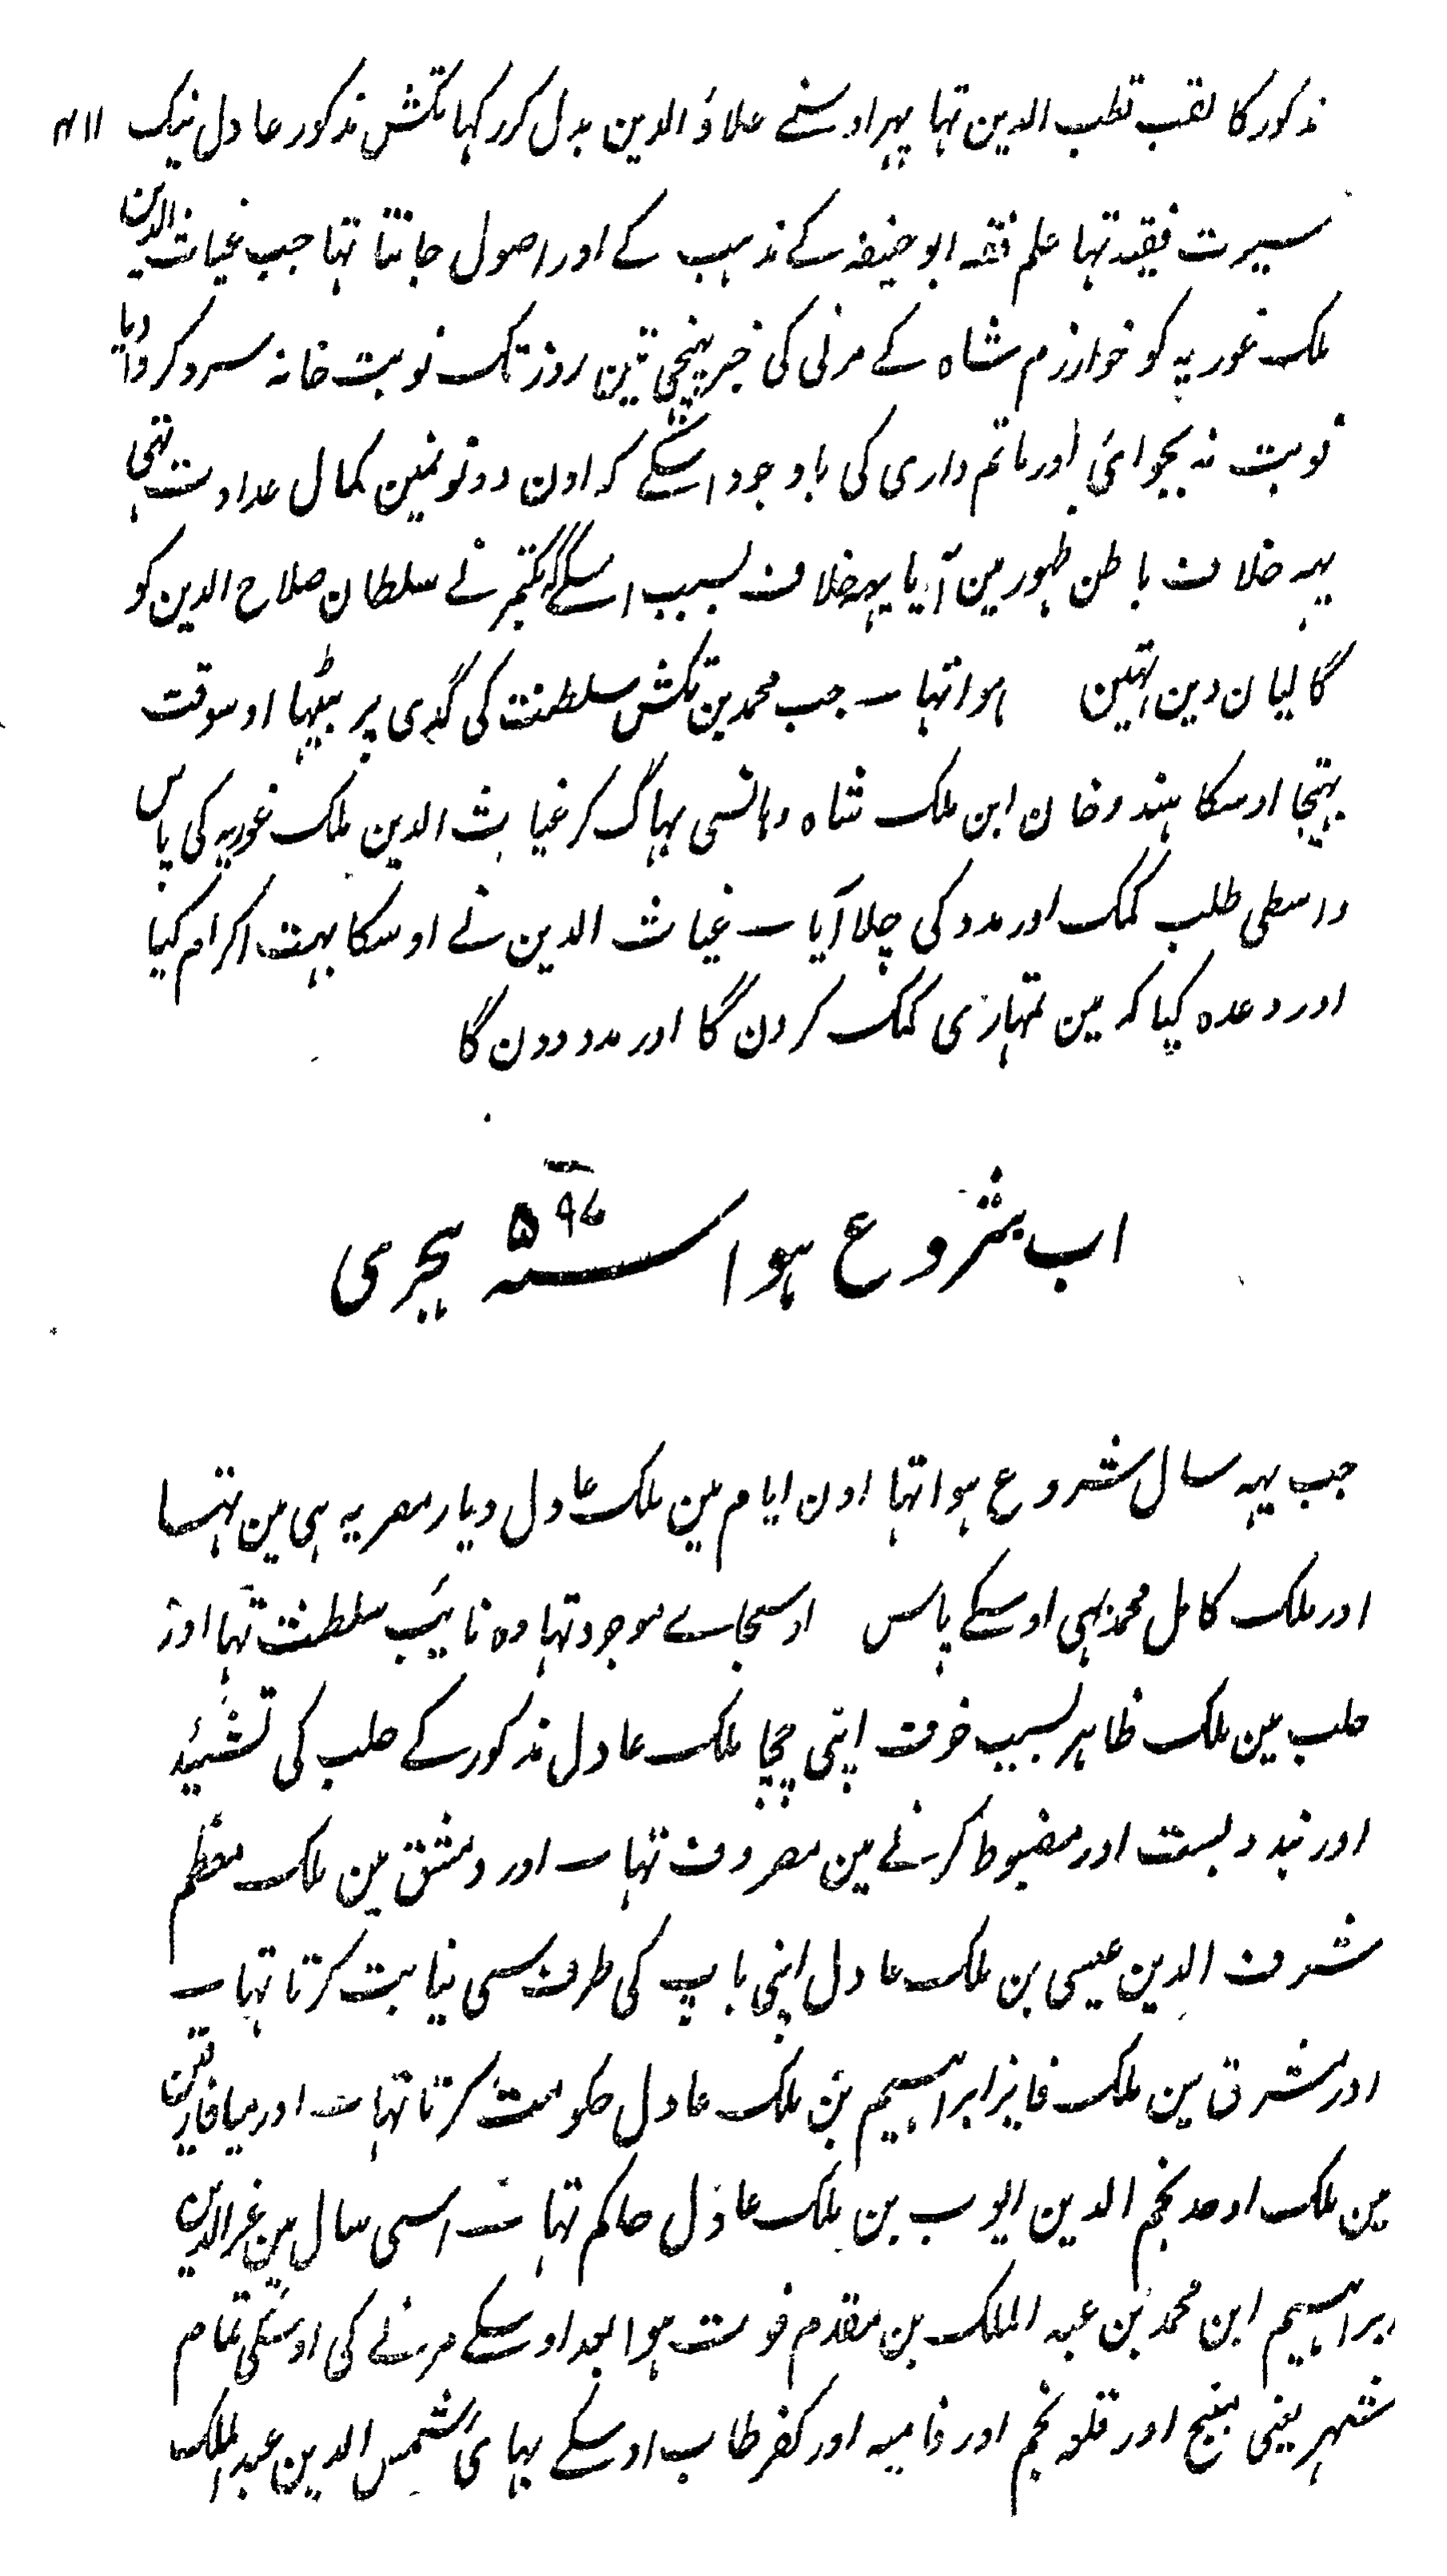 مذکور کا لقب قطب الدین تہا پہر اوسنے علاؤ الدین بدل کر رکہا تکش مذکور عادل نیک ۴۱۱
سیرت فقیہ تہا علم فقہ ابوحنیفہ کے مذہب کے اور اصول جانتا تہا جب غیاث الدین
ملک غوریہ کو خوارزم شاہ کے مرنی کی خبر پہنچی تین روز تک نوبت خانہ سرد کروا دیا
نوبت نہ بجوائی اور ماتم داری کی باوجود اسکے کہ اون دونونمین کمال عداوت تہی
یہہ خلاف باطن ظہور مین آیا یہہ خلاف بسبب اسکے کہ بکتمر نے سلطان صلاح الدین کو
گالیان دین تہین ہوا تہا ۔ جب محمد بن تکش سلطنت کی گدی پر بیٹہا اوسوقت
بہتیجا اوسکا ہندوخان ابن ملک شاہ وہانسی بہاگ کر غیاث الدین ملک غوریہ کی پاس
واسطی طلب کمک اور مدد کی چلا آیا ۔ غیاث الدین نے اوسکا بہت اکرام کیا
اور وعدہ کیا کہ مین تمہاری کمک کرون گا اور مدد دون گا
اب شروع ہوا سنہ ۵۹۷ ہجری
جب یہہ سال شروع ہوا تہا اون ایام مین ملک عادل دیار مصریہ ہی مین تہا
اور ملک کامل محمد بہی اوسکے پاس اوسجاے موجود تہا وہ نائب سلطنت تہا اور
حلب مین ملک ظاہر بسبب خوف اپنی چچا ملک عادل مذکور کے حلب کی تشئید
اور بند و بست اور مضبوط کرنے مین مصروف تہا ۔ اور دمشق مین ملک معظم
شرف الدین عیسی بن ملک عادل اپنی باپ کی طرف سی نیابت کرتا تہا ۔
اور مشرق مین ملک فایز ابراہیم بن ملک عادل حکومت کرتا تہا ۔ اور میافارقین
مین ملک اوحد نجم الدین ایوب بن ملک عادل حاکم تہا ۔ اسی سال مین عز الدین
ابراہیم ابن محمد بن عبد الملک بن مقدم فوت ہوا بعد اوسکے مرنے کی اوسکی تمام
شہر یعنی منبج اور قلعہ نجم اور فامیہ اور کفرطاب اوسکے بہائی شمس الدین عبد الملک